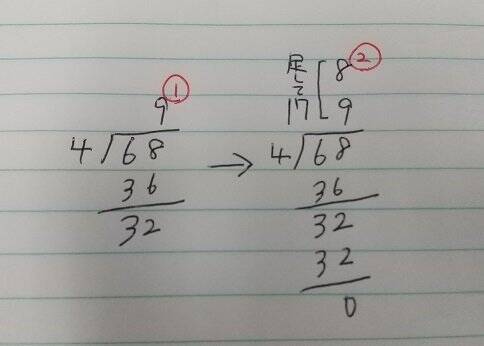 ①
9
4)68
36
32
→
足して17[8②
9
4)68
36
32
32
0